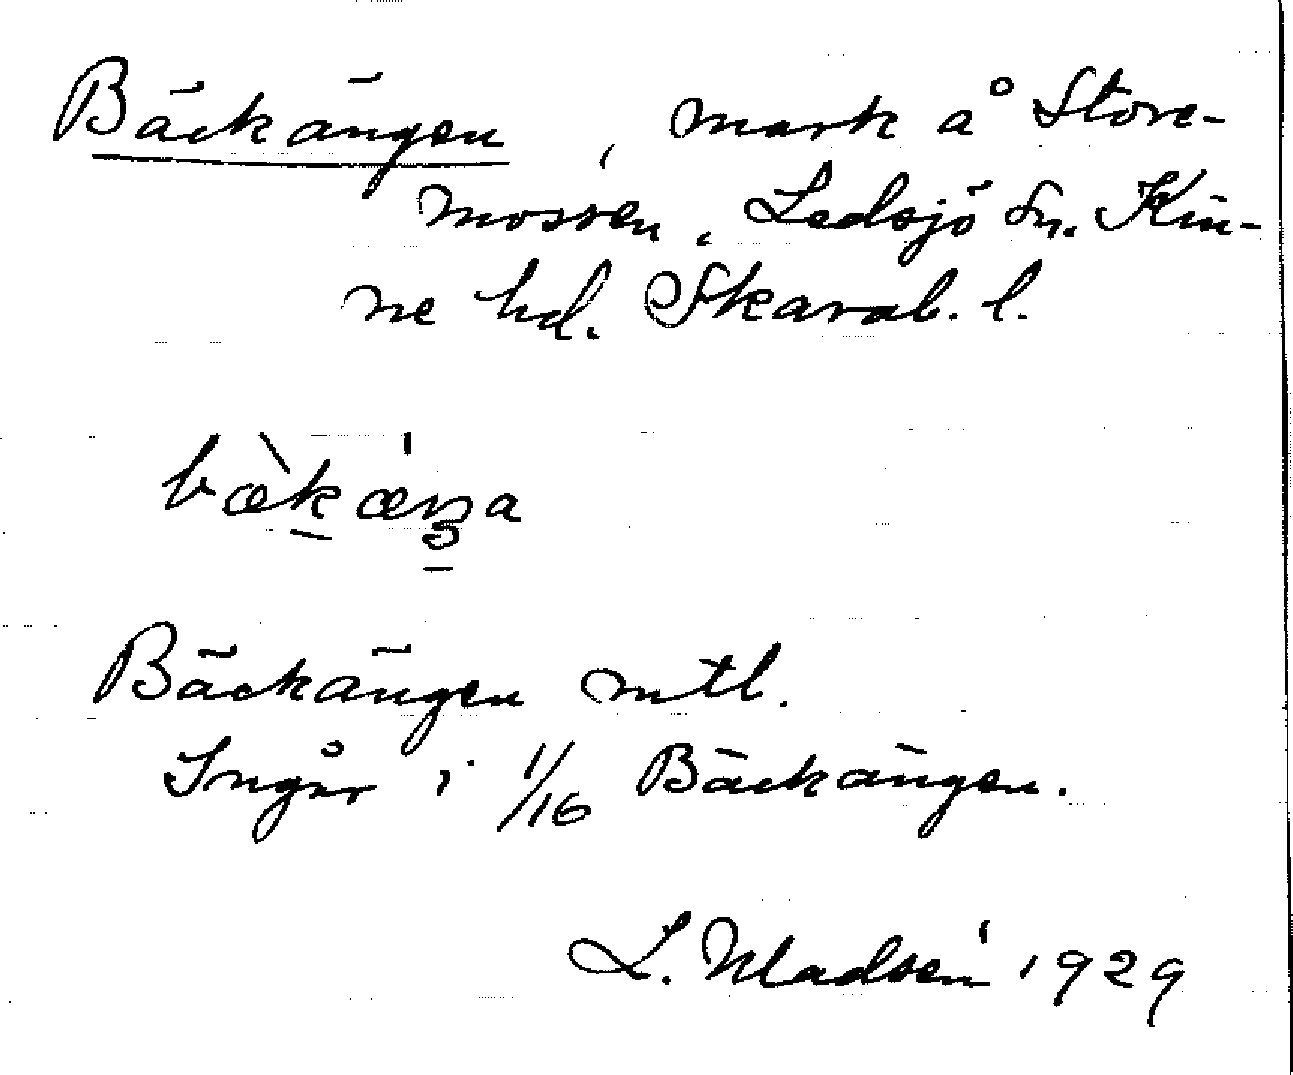 Bäckängen, mark å Store-
mossen, Ledsjö sn. Kin-
ne hd. Skarab. l.
bæ̀kæ̀ŋa
Bäckängen mtl.
Ingår i 1/16 Bäckängen.
L. Madsén 1929